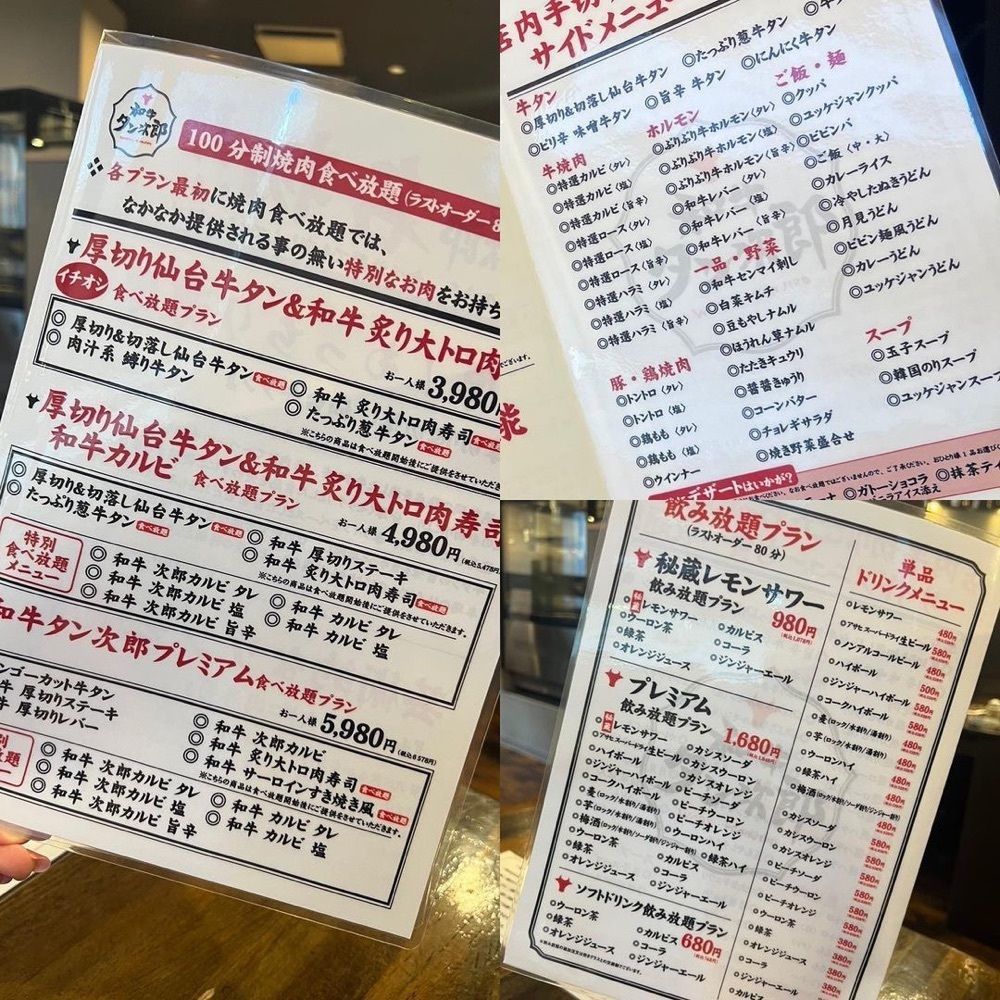 和牛
タン次郎
100分制焼肉食べ放題(ラストオーダー8
各プラン最初に焼肉食べ放題では、
なかなか提供される事の無い特別なお肉をお持ち
厚切り仙台牛タン&和牛 炙り大トロ肉
イチオシ 食べ放題プラン
お一人様 3,980
◎厚切り&切落し仙台牛タン 食べ放題
◎肉汁系 縛り牛タン
◎和牛 炙り大トロ肉寿司 食べ放
◎たっぷり葱牛タン 食べ放題
※こちらの商品は食べ放題開始後にご提供をさせていただ
厚切り仙台牛タン&和牛 炙り大トロ肉寿司
和牛カルビ 食べ放題プラン
お一人様 4,980円(税込5,478円)
◎厚切り&切落し仙台牛タン 食べ放題
◎たっぷり葱牛タン 食べ放題
◎和牛 厚切りステーキ
◎和牛 炙り大トロ肉寿司 食べ放題
※こちらの商品は食べ放題開始後にご提供をさせていただきます。
特別
食べ放題
メニュー
◎和牛 次郎カルビ タレ
◎和牛 次郎カルビ 塩
◎和牛 次郎カルビ 旨辛
◎和牛 カルビ タレ
◎和牛 カルビ 塩
和牛タン次郎プレミアム食べ放題プラン
お一人様 5,980円(税込6578円)
ンゴーカット牛タン
牛 厚切りステーキ
牛 厚切りレバー
◎和牛 次郎カルビ
◎和牛 炙り大トロ肉寿司 食べ放題
◎和牛 サーロインすき焼き風 食べ放題
※こちらの商品は食べ放題開始後にご提供をさせていただきます。
◎和牛 次郎カルビ タレ
◎和牛 次郎カルビ 塩
◎和牛 次郎カルビ 旨辛
◎和牛 カルビ タレ
◎和牛 カルビ 塩
店内手切
サイドメニュー
牛タン
◎厚切り&切落し仙台牛タン
◎たっぷり葱牛タン
◎ピリ辛 味噌牛タン
◎旨辛 牛タン
◎にんにく牛タン
牛焼肉
◎特選カルビ〈タレ〉
◎特選カルビ〈塩〉
◎特選カルビ〈旨辛〉
◎特選ロース〈タレ〉
◎特選ロース〈塩〉
◎特選ロース〈旨辛〉
◎特選ハラミ〈タレ〉
◎特選ハラミ〈塩〉
◎特選ハラミ〈旨辛〉
豚・鶏焼肉
◎トントロ〈タレ〉
◎トントロ〈塩〉
◎鶏もも〈タレ〉
◎鶏もも〈塩〉
◎ウインナー
ホルモン
◎ぷりぷり牛ホルモン〈タレ〉
◎ぷりぷり牛ホルモン〈塩〉
◎ぷりぷり牛ホルモン〈旨辛〉
◎和牛レバー〈タレ〉
◎和牛レバー〈塩〉
◎和牛レバー〈旨辛〉
一品・野菜
◎和牛センマイ刺し
◎白菜キムチ
◎豆もやしナムル
◎ほうれん草ナムル
◎たたきキュウリ
◎昔醤きゅうり
◎コーンバター
◎チョレギサラダ
◎焼き野菜盛合せ
ご飯・麺
◎クッパ
◎ユッケジャンクッパ
◎ビビンバ
◎ご飯〈中・大〉
◎カレーライス
◎冷やしたぬきうどん
◎月見うどん
◎ビビン麺風うどん
◎カレーうどん
◎ユッケジャンうどん
スープ
◎玉子スープ
◎韓国のりスープ
◎ユッケジャンスープ
デザートはいかが?
◎ガトーショコラ
バニラアイス添え
◎抹茶テ
飲み放題プラン
(ラストオーダー80分)
秘蔵レモンサワー
飲み放題プラン 980円
(税込1,078円)
秘蔵 レモンサワー
ウーロン茶
緑茶
オレンジジュース
カルピス
コーラ
ジンジャーエール
プレミアム
飲み放題プラン 1,680円
(税込1,848円)
秘蔵 レモンサワー
アサヒ スーパードライ 生ビール
ハイボール
ジンジャーハイボール
コークハイボール
麦(ロック/水割り/湯割り)
芋(ロック/水割り/湯割り)
梅酒(ロック/水割り/ソーダ割り/ジンジャー割り)
ウーロン茶
緑茶
オレンジジュース
カシスソーダ
カシスウーロン
カシスオレンジ
ピーチソーダ
ピーチウーロン
ピーチオレンジ
ウーロンハイ
緑茶ハイ
カルピス
コーラ
ジンジャーエール
ソフトドリンク飲み放題プラン
680円
(税込748円)
ウーロン茶
緑茶
オレンジジュース
カルピス
コーラ
ジンジャーエール
単品
ドリンクメニュー
レモンサワー 480円
アサヒ スーパードライ 生ビール 580円
ノンアルコールビール 480円
ハイボール 500円
ジンジャーハイボール 580円
コークハイボール 580円
麦(ロック/水割り/湯割り) 480円
芋(ロック/水割り/湯割り) 480円
ウーロンハイ 480円
緑茶ハイ 480円
梅酒(ロック/水割り/ソーダ割り/ジンジャー割り) 480円
カシスソーダ 580円
カシスウーロン 580円
カシスオレンジ 580円
ピーチソーダ 580円
ピーチウーロン 580円
ピーチオレンジ 580円
ウーロン茶 380円
緑茶 380円
オレンジジュース 380円
コーラ 380円
ジンジャーエール 380円
カルピス